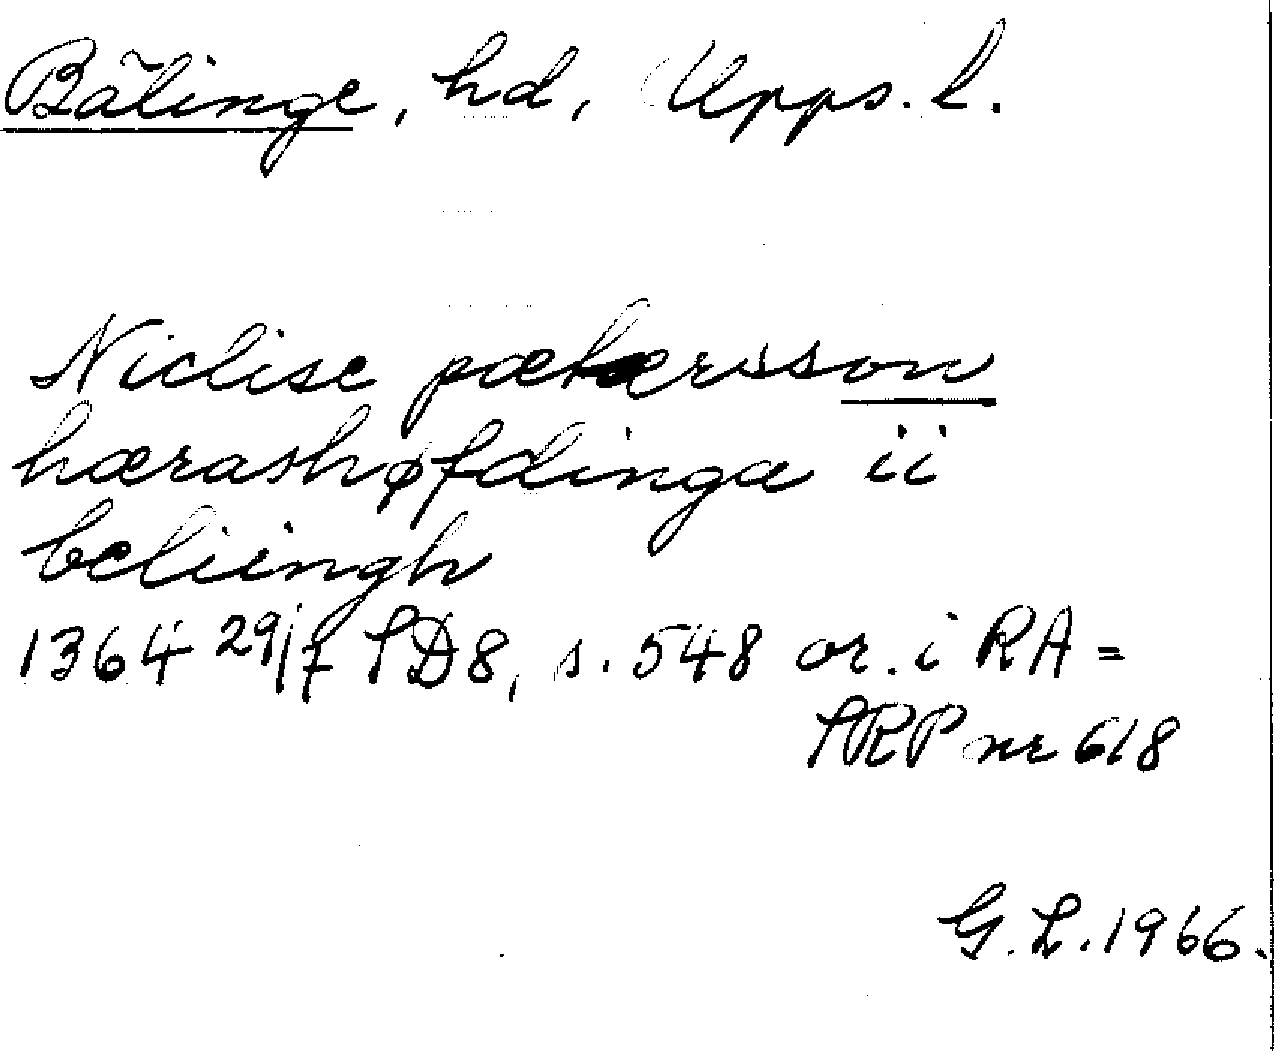 Bälinge, hd, Upps. l.
Niclise pætærsson
hærashøfdingæ ii
beliingh
1364 29/7 SD8, s. 548 or. i RA =
SRP nr 618
G. L. 1966.